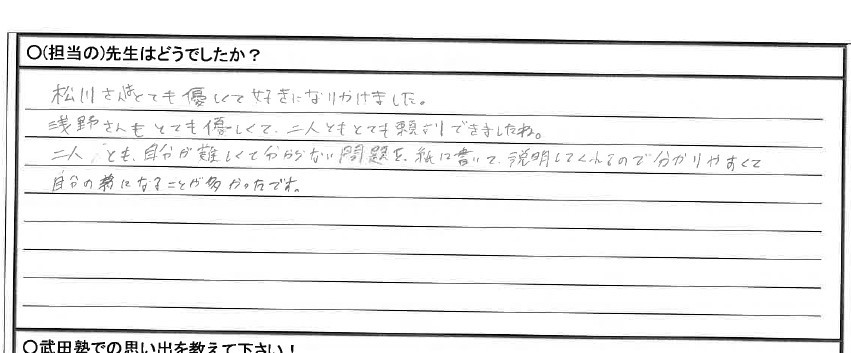 〇(担当の)先生はどうでしたか？
松川さんはとても優しくて好きになりかけました。
浅野さんもとても優しくて、二人ともとても頼りできましたね。
二人とも、自分が難しくて分からない問題を、紙に書いて、説明してくれるので分かりやすくて
自分の為になることが多かったですね。
〇武田塾での思い出を教えて下さい！